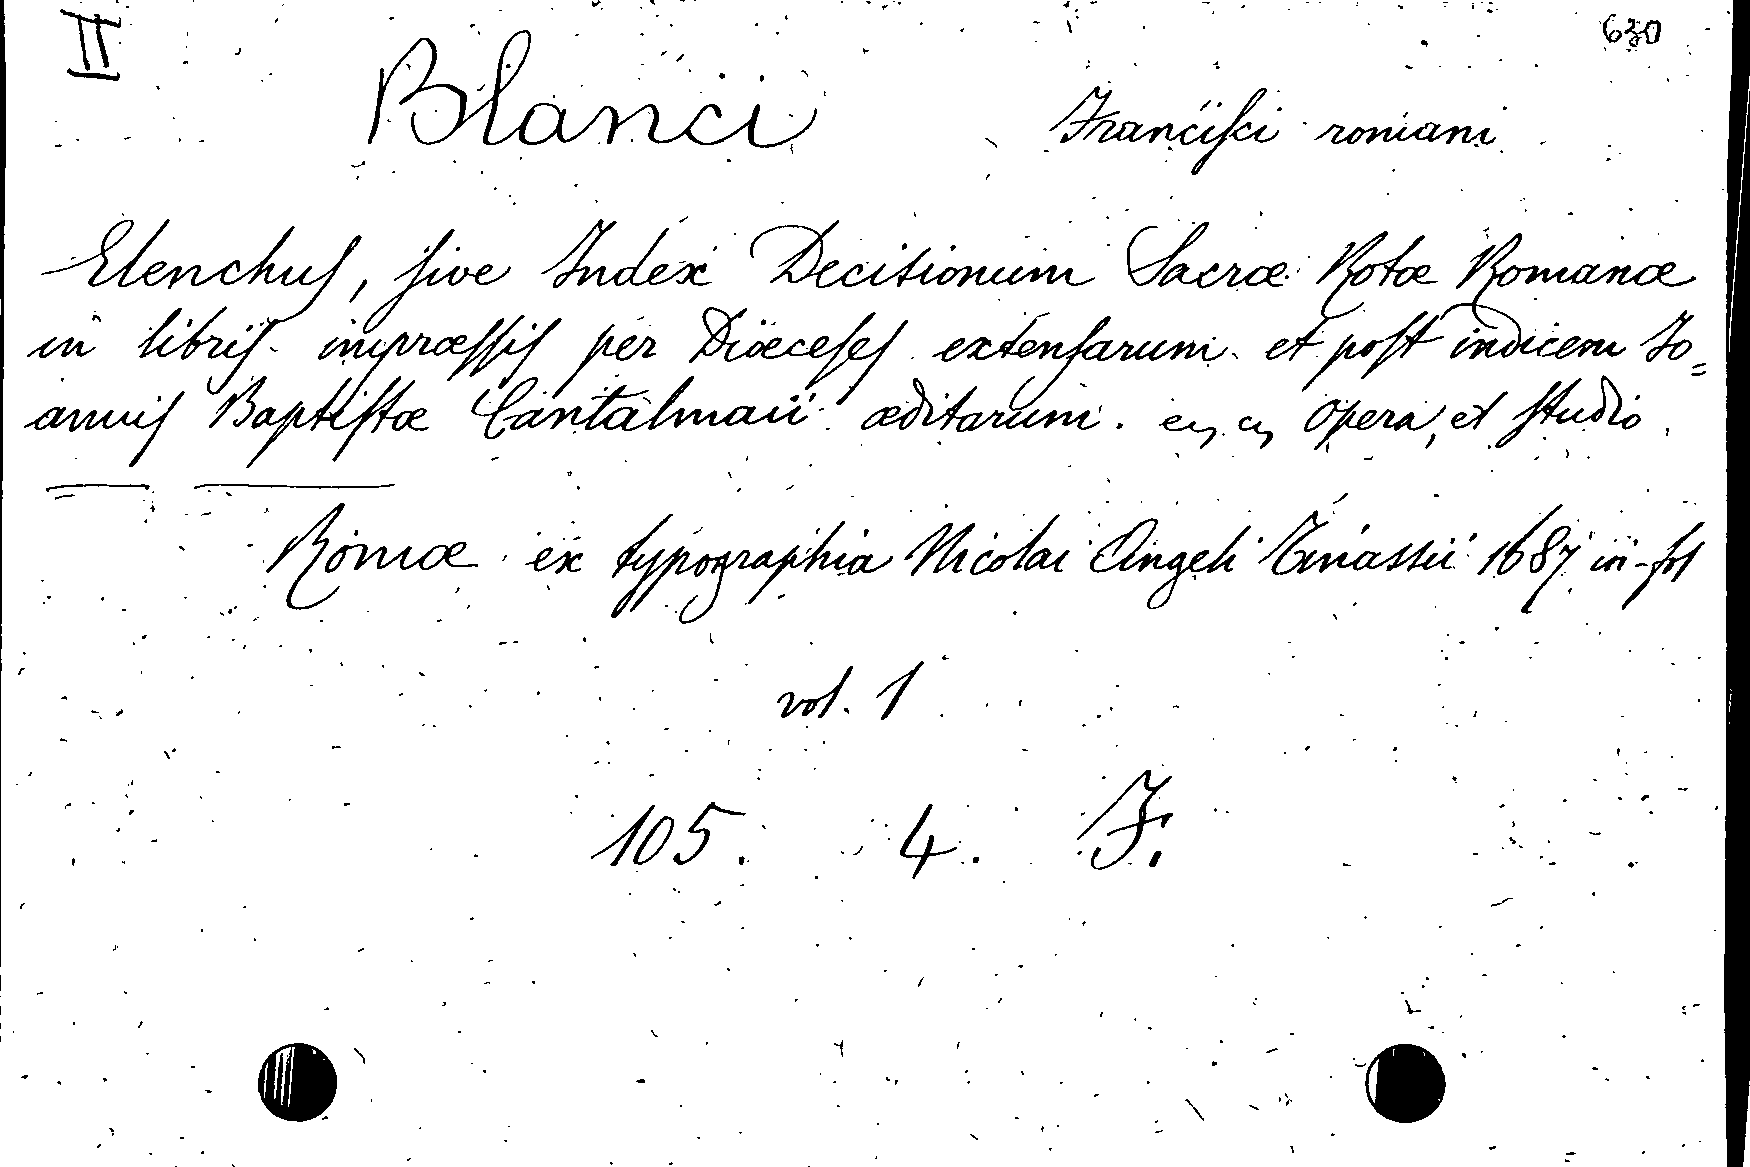 II 630
Blanci Francisci romani
Elenchus, sive Index Decisionum Sacræ Rotæ Romanæ
in libris impræssis per Diœceses extensarum et post indicem Jo=
annis Baptistæ Cantalmaii æditarum. Opera, et studio
Romæ ex typographia Nicolai Angeli Tinassii 1687 in-fol
vol. 1
105. 4. F.